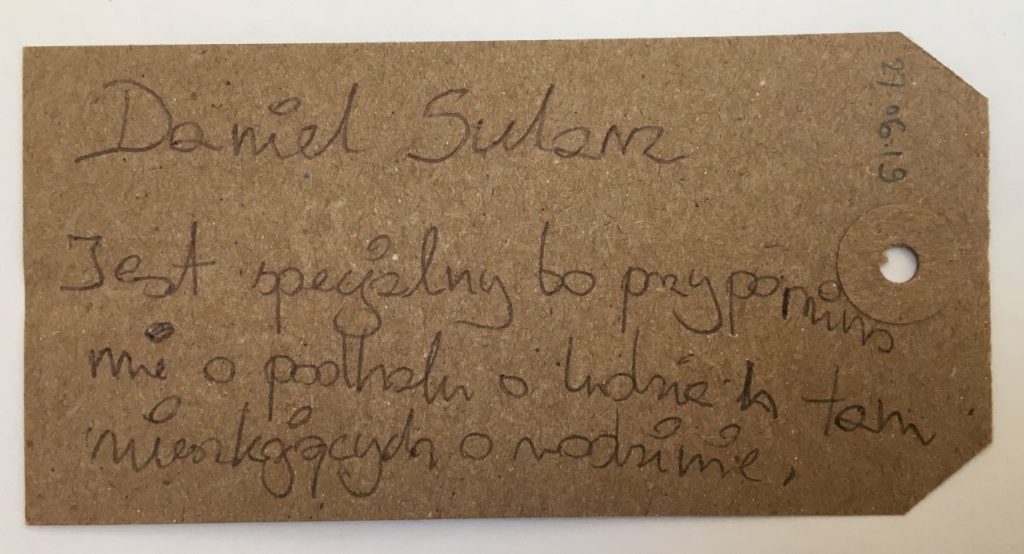 Daniel Sularz
27.06.19
Jest specjalny bo przypomina
mi o podhalu o ludzich tam
mieszkających o rodzinie,